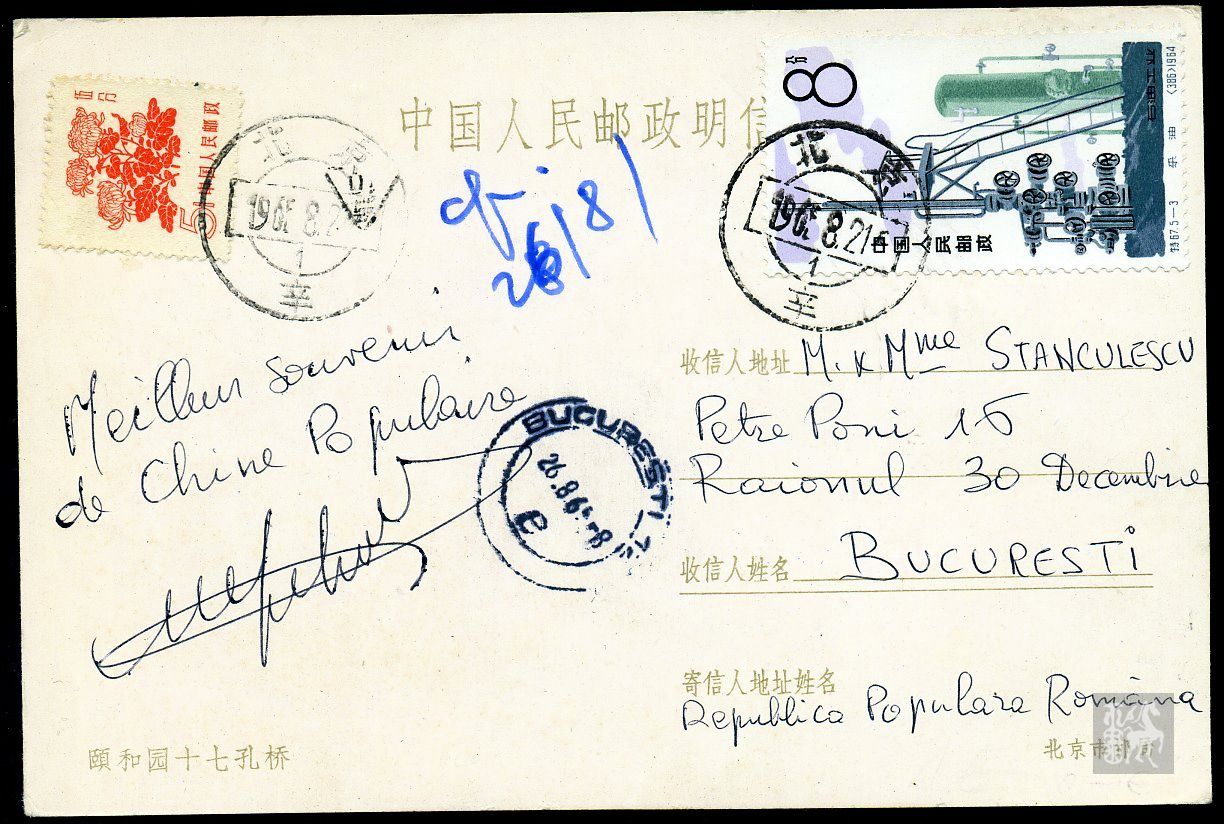 中国人民邮政明信
五分
中国人民邮政
5
北京
1965.8.21
1
辛
8
分
中国人民邮政
特67.5-3
采油
(386)1964
石油工业
北京
1965.8.21
1
辛
26/8/
Meilleur souvenir
de Chine Populaire
BUCUREŞTI
26.8.65-8
e
收信人地址 M. & Mme STANCULESCU
Petre Poni 16
Raionul 30 Decembrie
收信人姓名 BUCURESTI
寄信人地址姓名
Republica Populara Română
颐和园十七孔桥
北京市邮局